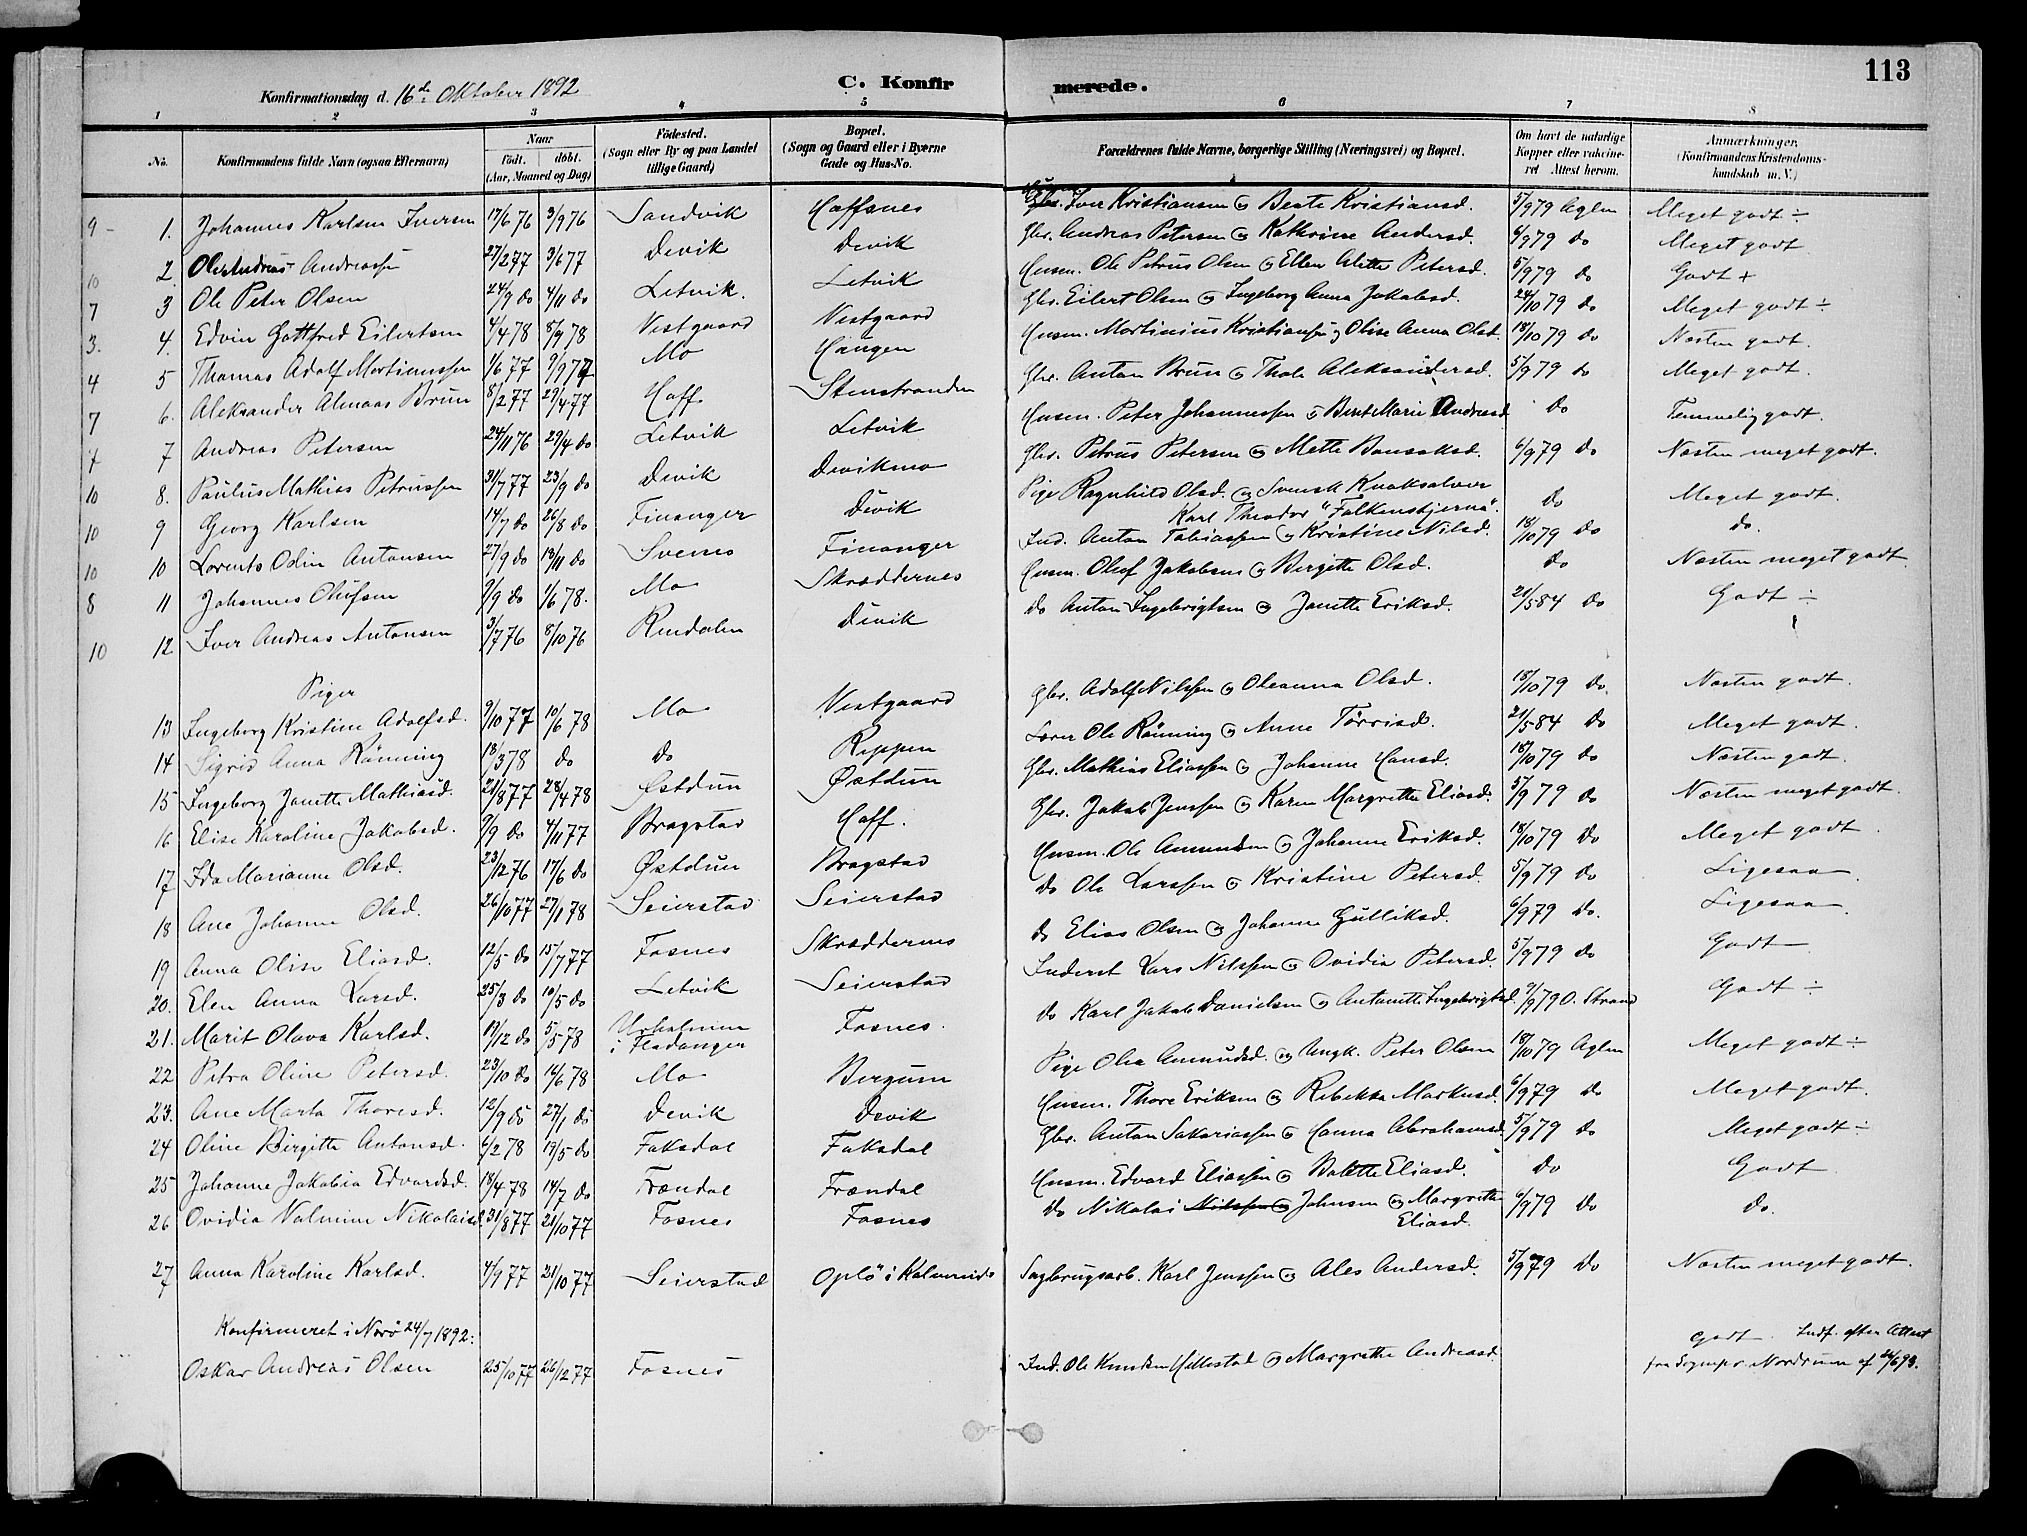 113
Konfirmationsdag d. 16de Oktober 1892
C. Konfirmerede.
1 2 3 4 5 6 7 8
No. | Konfirmandens fulde Navn (ogsaa Efternavn) | Naar født. døbt. (Aar, Maaned og Dag) | Fødested. (Sogn eller By og paa Landet tillige Gaard) | Bopæl. (Sogn og Gaard eller i Byerne Gade og Hus-No. | Forældrenes fulde Navne, borgerlige Stilling (Næringsvei) og Bopæl. | Om havt de naturlige Kopper eller vakcineret Attest herom. | Anmærkninger. (Konfirmandens Kristendomskundskab m. V.)
9 - 1. Johannes Karlsen Iversen 17/6 76 3/9 76 Sandvik Haffsnes Iver Kristiansen og Berte Kristiansd. 5/9 79 Aglen Meget godt ÷
10 2. Ole Andreas Andreassen 27/2 77 3/6 77 Devik Devik Gbr. Andreas Petersen og Kathrine Andersd. 6/9 79 do Meget godt
7 3 Ole Peter Olsen 24/9 do 4/11 do Letvik. Letvik Husm. Ole Petrus Olsen og Ellen Alette Petersd. 5/9 79 do Godt +
3. 4. Edvin Gottfred Eilertsen 4/4 78 8/9 78 Vestgaard Vestgaard Gbr. Eilert Olsen og Ingeborg Anna Jakobsd. 24/10 79 do Meget godt ÷
4 5 Thomas Adolf Mortinussen 1/6 77 9/9 77 Mo Haugen Husm. Mortinius Kristiansen og Olise Anna Olsd. 18/10 79 do Næsten godt.
7 6. Aleksander Almaas Brun 8/2 77 29/4 77 Haff Stenstranden Gbr. Anton Brun og Thale Aleksandersd. 5/9 79 do Meget godt.
7 7 Andreas Petersen 24/11 76 29/4 do Letvik Letvik Husm. Peter Johannessen og Beret Marie Andreasd do Temmelig godt.
10 8. Paulus Mathias Petrussen 31/7 77 23/9 do Devik Devikmo Gbr. Petrus Petersen og Mette Bansaksd. 6/9 79 do Næsten meget godt.
10 9 Georg Karlsen 14/7 do 26/8 do Finanger Devik Pige Ragnhild Olsd. og Svensk Kvaksalver Karl Theodor "Falkenstjerna". do Meget godt.
10 10 Lorents Odin Antonsen 27/9 do 18/11 do Svenes Finanger Ind. Anton Tobiassen og Kristine Nilsd. 18/10 79 do do.
8 11 Johannes Olufsen 9/9 do 1/6 78. Mo Skræddernes Husm. Oluf Jakobsen og Bergitte Olsd. do Næsten meget godt
10 12 Iver Andreas Antonsen 3/7 76 8/10 76 Rendalen Devik do Anton Ingebrigtsen og Janette Eriksd. 21/5 84 do Godt ÷
Piger
13 Ingeborg Kristine Adolfsd. 9/10 77 10/6 78 Mo Vestgaard Gbr. Adolf Nilssen og Oleanna Olsd. 18/10 79 do. Næsten godt.
14 Sigrid Anna Rønning 18/3 78 do do Reppen Lærer Ole Rønning og Anne Tørrisd. 21/5 84 do Meget godt.
15 Ingeborg Janette Mathiasd. 21/8 77 28/4 78 Østdun Østdun Gbr. Mathias Eliassen og Johanne Hansd. 18/10 79 do Næsten godt.
16 Elise Karoline Jakobsd. 9/9 do 4/11 77 Bragstad Haff. Gbr. Jakob Jenssen og Karen Margrethe Eliasd. 5/9 79 do Næsten meget godt.
17 Ida Marianne Olsd. 23/12 76 17/6 do Østdun Bragstad Husm. Ole Amundsen og Johanne Eriksd. 18/10 79 do Meget godt.
18 Ane Johanne Olsd. 26/10 77 27/1 78 Seierstad Seierstad do Ole Larssen og Kristine Petersd. 5/9 79 do Ligesaa
19 Anna Olise Eliasd. 12/5 do 15/7 77 Fosnes Skræddernes do Elias Olsen og Johanne Gulliksd. 6/9 79 do. Ligesaa
20. Elen Anna Larsd. 25/3 do 10/5 do Letvik Seierstad Inderst Lars Nilssen og Ovidia Petersd. 5/9 79 do Godt
21. Marit Olava Karlsd. 19/12 do 5/5 78 i Fladanger Fosnes. do Karl Jakob Danielsen og Antonette Ingebrigtsd. 9/9 79 O. Strand Godt ÷
22 Petra Oline Petersd. 23/10 do 16/6 78 Mo Bergum Pige Olea Amundsd. og Ungk. Peter Olsen 18/10 79 Aglen Meget godt ÷
23. Ane Marta Thoresd. 12/9 do 27/1 do Devik Devik Husm. Thore Eriksen og Rebekka Markusd. 6/9 79 do Meget godt.
24 Oline Birgitte Antonsd. 6/2 78 19/5 do Faksdal Faksdal Gbr. Anton Sakariassen og Hanna Abrahamsd. 5/9 79 do Meget godt ÷
25 Johanne Jakobia Edvardsd. 18/4 78 14/7 do Frændal Frændal Husm. Edvard Eliassen og Bolette Eliasd. do Godt
26 Ovidia Valmine Nikolaisd. 31/8 77 21/10 77 Fosnes Fosnes do Nikolai Nilssen og Johnsen og Margrethe Eliasd. 6/9 79 do do.
27 Anna Karoline Karlsd. 4/9 77 21/10 77 Seierstad Oplø i Kolvereid Sagbrugsarb. Karl Jenssen og Ales Andersd. 5/9 79 do Næsten meget godt.
Konfirmeret i Nærø 24/7 1892:
Oskar Andreas Olsen 25/10 77 26/12 77 Fosnes Ind. Ole Knudsen Hellestad og Margrethe Andreasd. Godt. Indf. efter Attest fra Sognepr. Nordrum af 24/6 93.